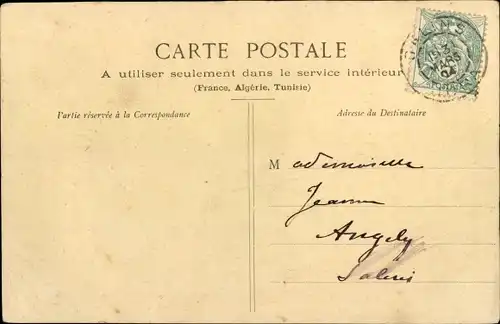 CARTE POSTALE
A utiliser seulement dans le service intérieur
(France, Algérie, Tunisie)
Partie réservée à la Correspondance
Adresse du Destinataire
Mademoiselle
Jeanne
Angely
Salins